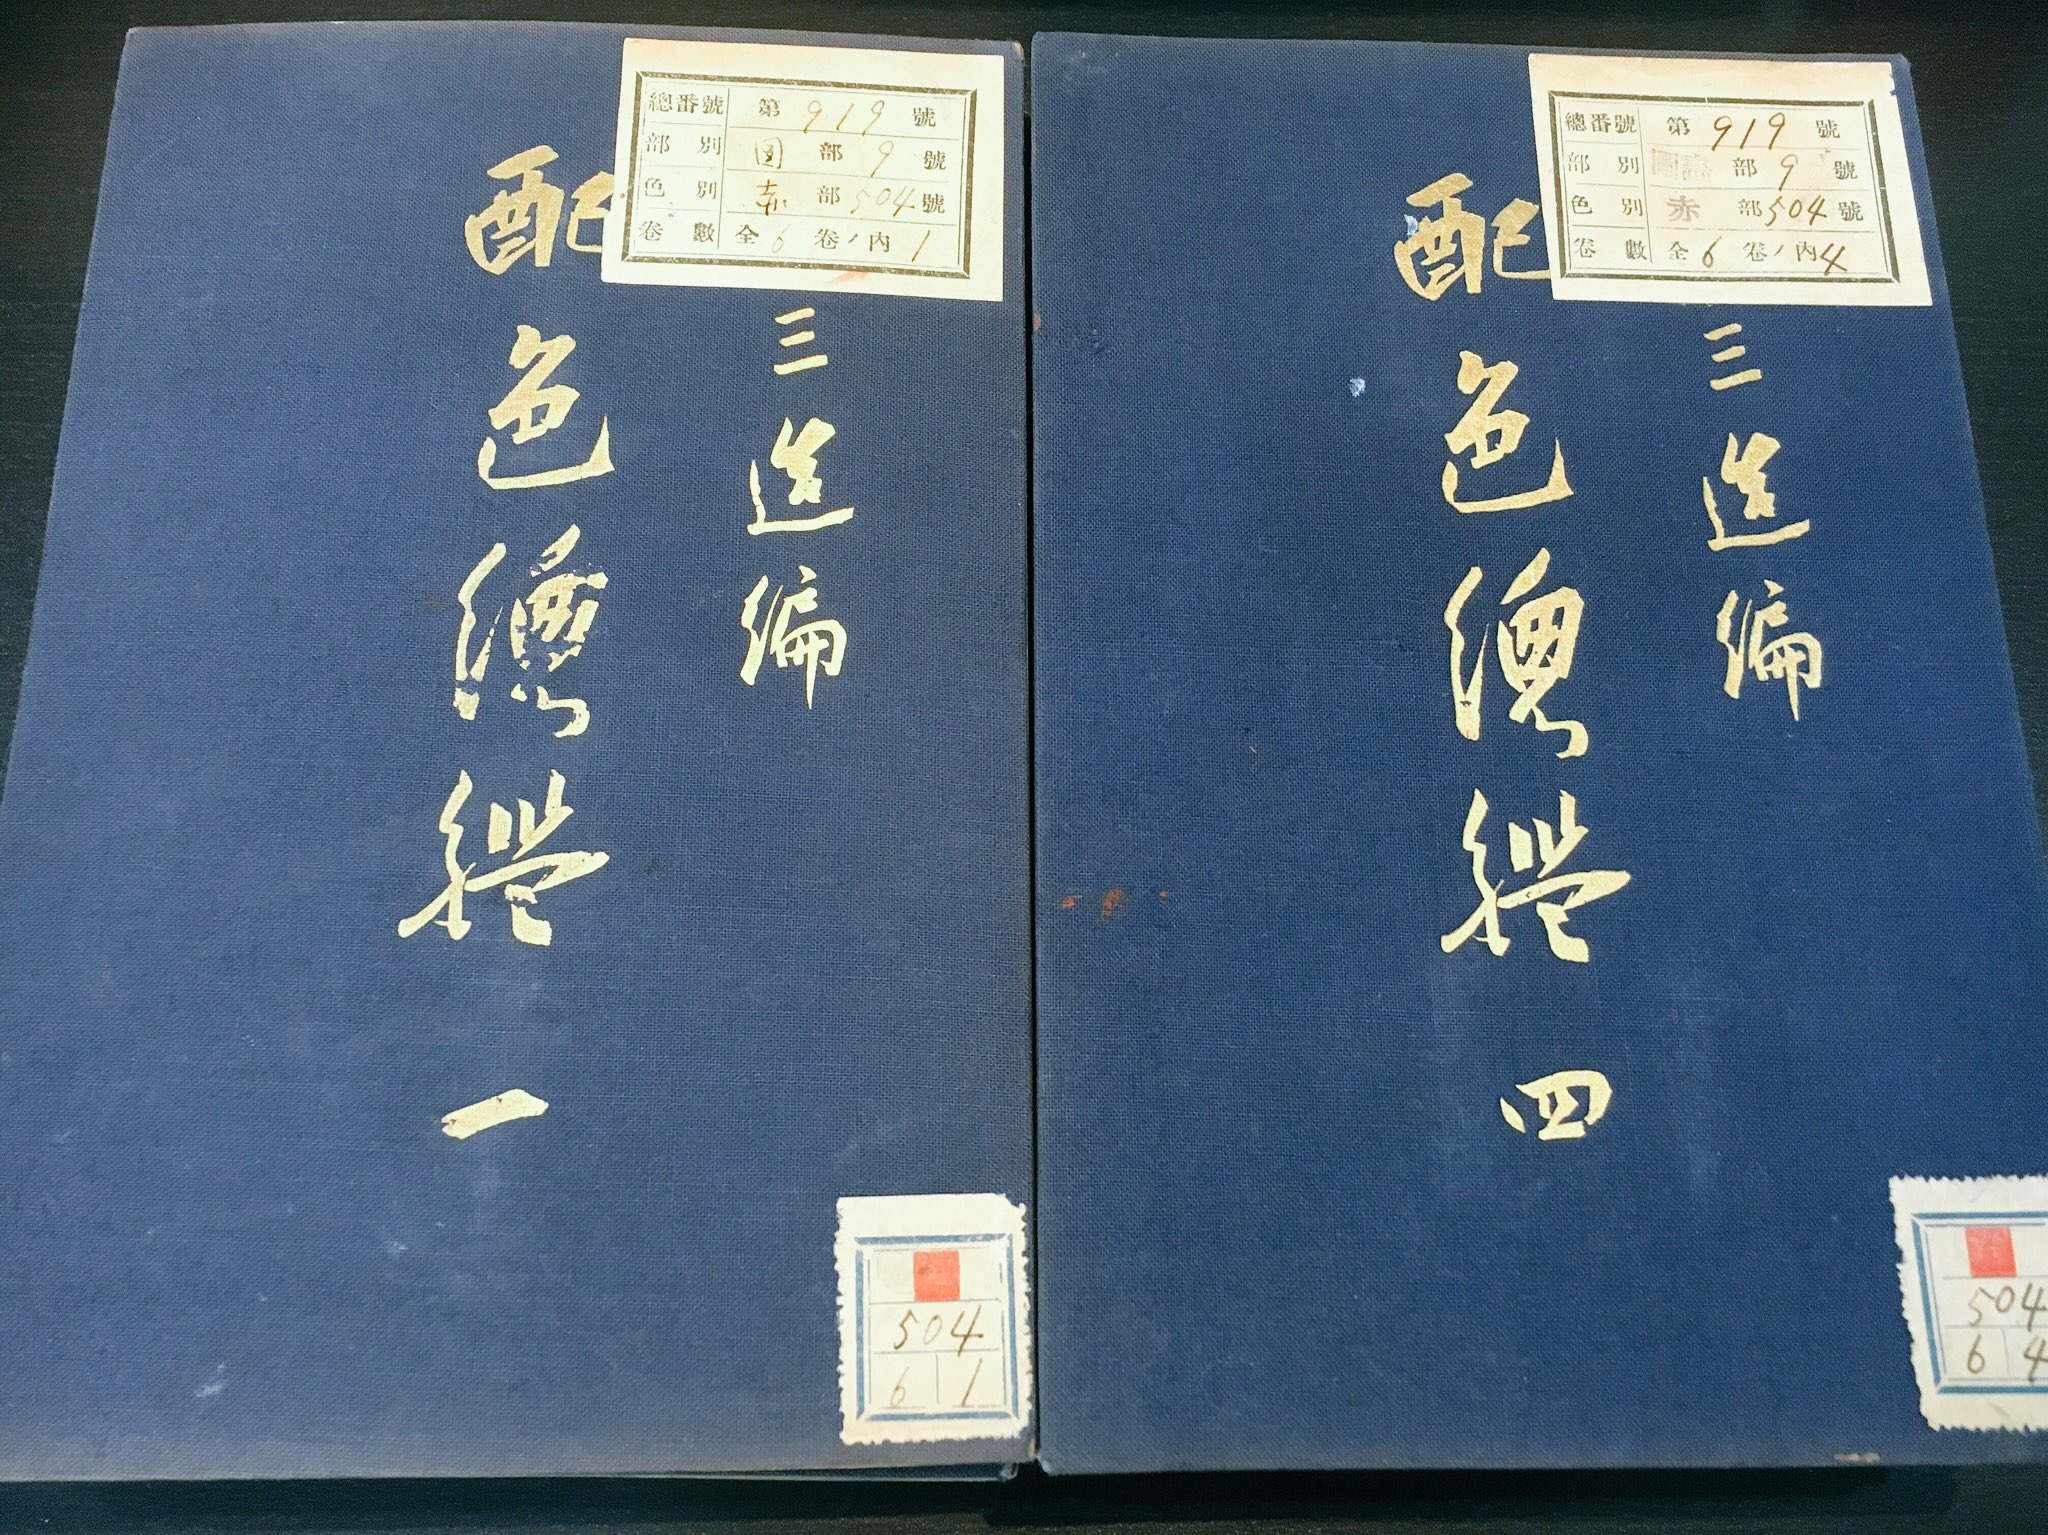 總番號 第 919 號
部別 図 部 9 號
色別 赤 部 504 號
卷數 全 6 卷ノ內 1
三造編
配色總鑑
一
504
6 1
總番號 第 919 號
部別 圖書 部 9 號
色別 赤 部 504 號
卷數 全 6 卷ノ內 4
三造編
配色總鑑
四
504
6 4